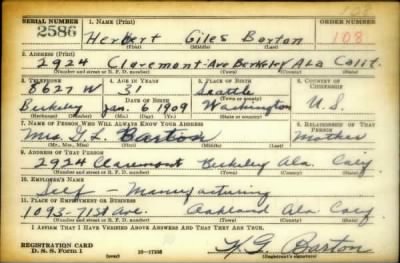 SERIAL NUMBER 1. NAME (Print) ORDER NUMBER
2586 Herbert Giles Barton 108
(First) (Middle) (Last)
2. ADDRESS (Print)
2924 Claremont Ave Berkeley Ala Calif.
(Number and street or R. F. D. number) (Town) (County) (State)
3. TELEPHONE 4. AGE IN YEARS 5. PLACE OF BIRTH 6. COUNTRY OF CITIZENSHIP
8627 W 31 Seattle
DATE OF BIRTH (Town or county)
Berkeley Jan. 6 1909 Washington U.S.
(Exchange) (Number) (Mo.) (Day) (Yr.) (State or country)
7. NAME OF PERSON WHO WILL ALWAYS KNOW YOUR ADDRESS 8. RELATIONSHIP OF THAT PERSON
Mrs. G. L. Barton Mother
(Mr., Mrs., Miss) (First) (Middle) (Last)
9. ADDRESS OF THAT PERSON
2924 Claremont Berkeley Ala. Calif
(Number and street or R. F. D. number) (Town) (County) (State)
10. EMPLOYER'S NAME
Self - Manufacturing
11. PLACE OF EMPLOYMENT OR BUSINESS
1093-71st Ave. Oakland Ala Calif
(Number and street or R. F. D. number) (Town) (County) (State)
I AFFIRM THAT I HAVE VERIFIED ABOVE ANSWERS AND THAT THEY ARE TRUE.
REGISTRATION CARD
D. S. S. Form 1 (over) H. G. Barton
(Registrant's signature)